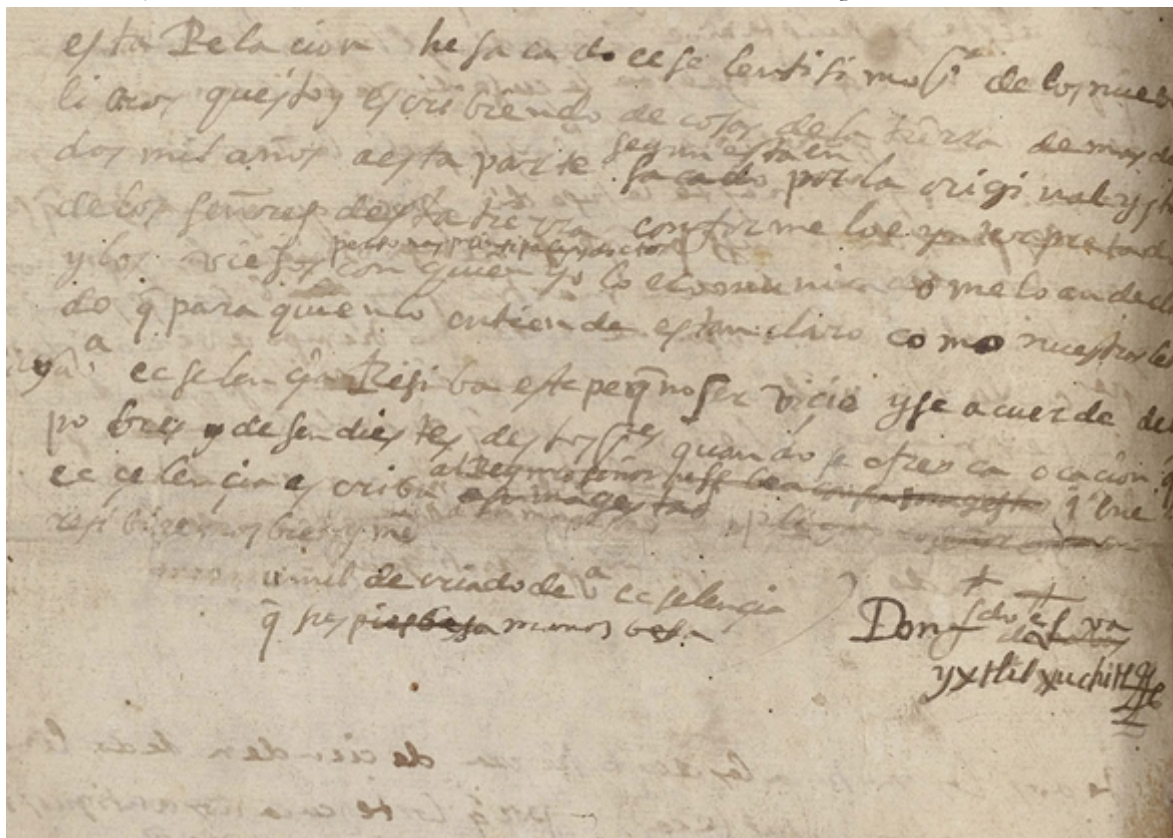 esta Relacion he sacado ecselentisimo s.or de los nueb
libros questoy escribiendo de cosas de la tierra de mas de
dos mil años a esta parte segun esta en
sacado por la original ysto
de los señores desta tierra conforme loe ynterpretado
y los viejos personas prinsipales y doctos con quien yo lo e comunicado me lo an decla
do q̄ para quien lo entiende es tan claro como nuestras le
vr̄a ecselençia Resiba este peq̄no ser vicio y se acuerde de l
pobres desendientes destos s.res quando se ofresca ocacion
ecselençia escriba al Rey mi señor a su magestad
resibiremos bien y md
umilde criado de v.a ecselençia
q̄ sus pies besa manos besa
Don fdo de alva
yxtlilxuchitl